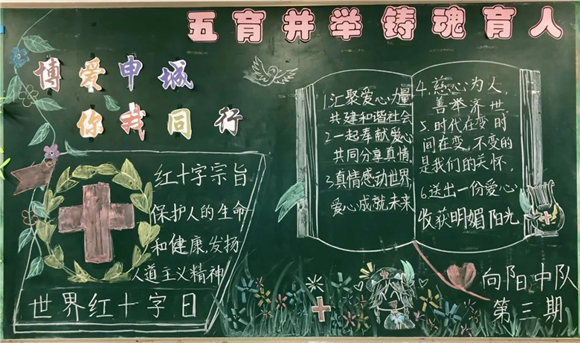 五育并举铸魂育人
博爱申城
你我同行
红十字宗旨
保护人的生命
和健康,发扬
人道主义精神
世界红十字日
1.汇聚爱心力量
共建和谐社会
2.一起奉献爱心
共同分享真情
3.真情感动世界
爱心成就未来
4.慈心为人,
善举济世
5.时代在变时
间在变,不变的
是我们的关怀,
6.送出一份爱心
收获明媚阳光
向阳中队
第三期